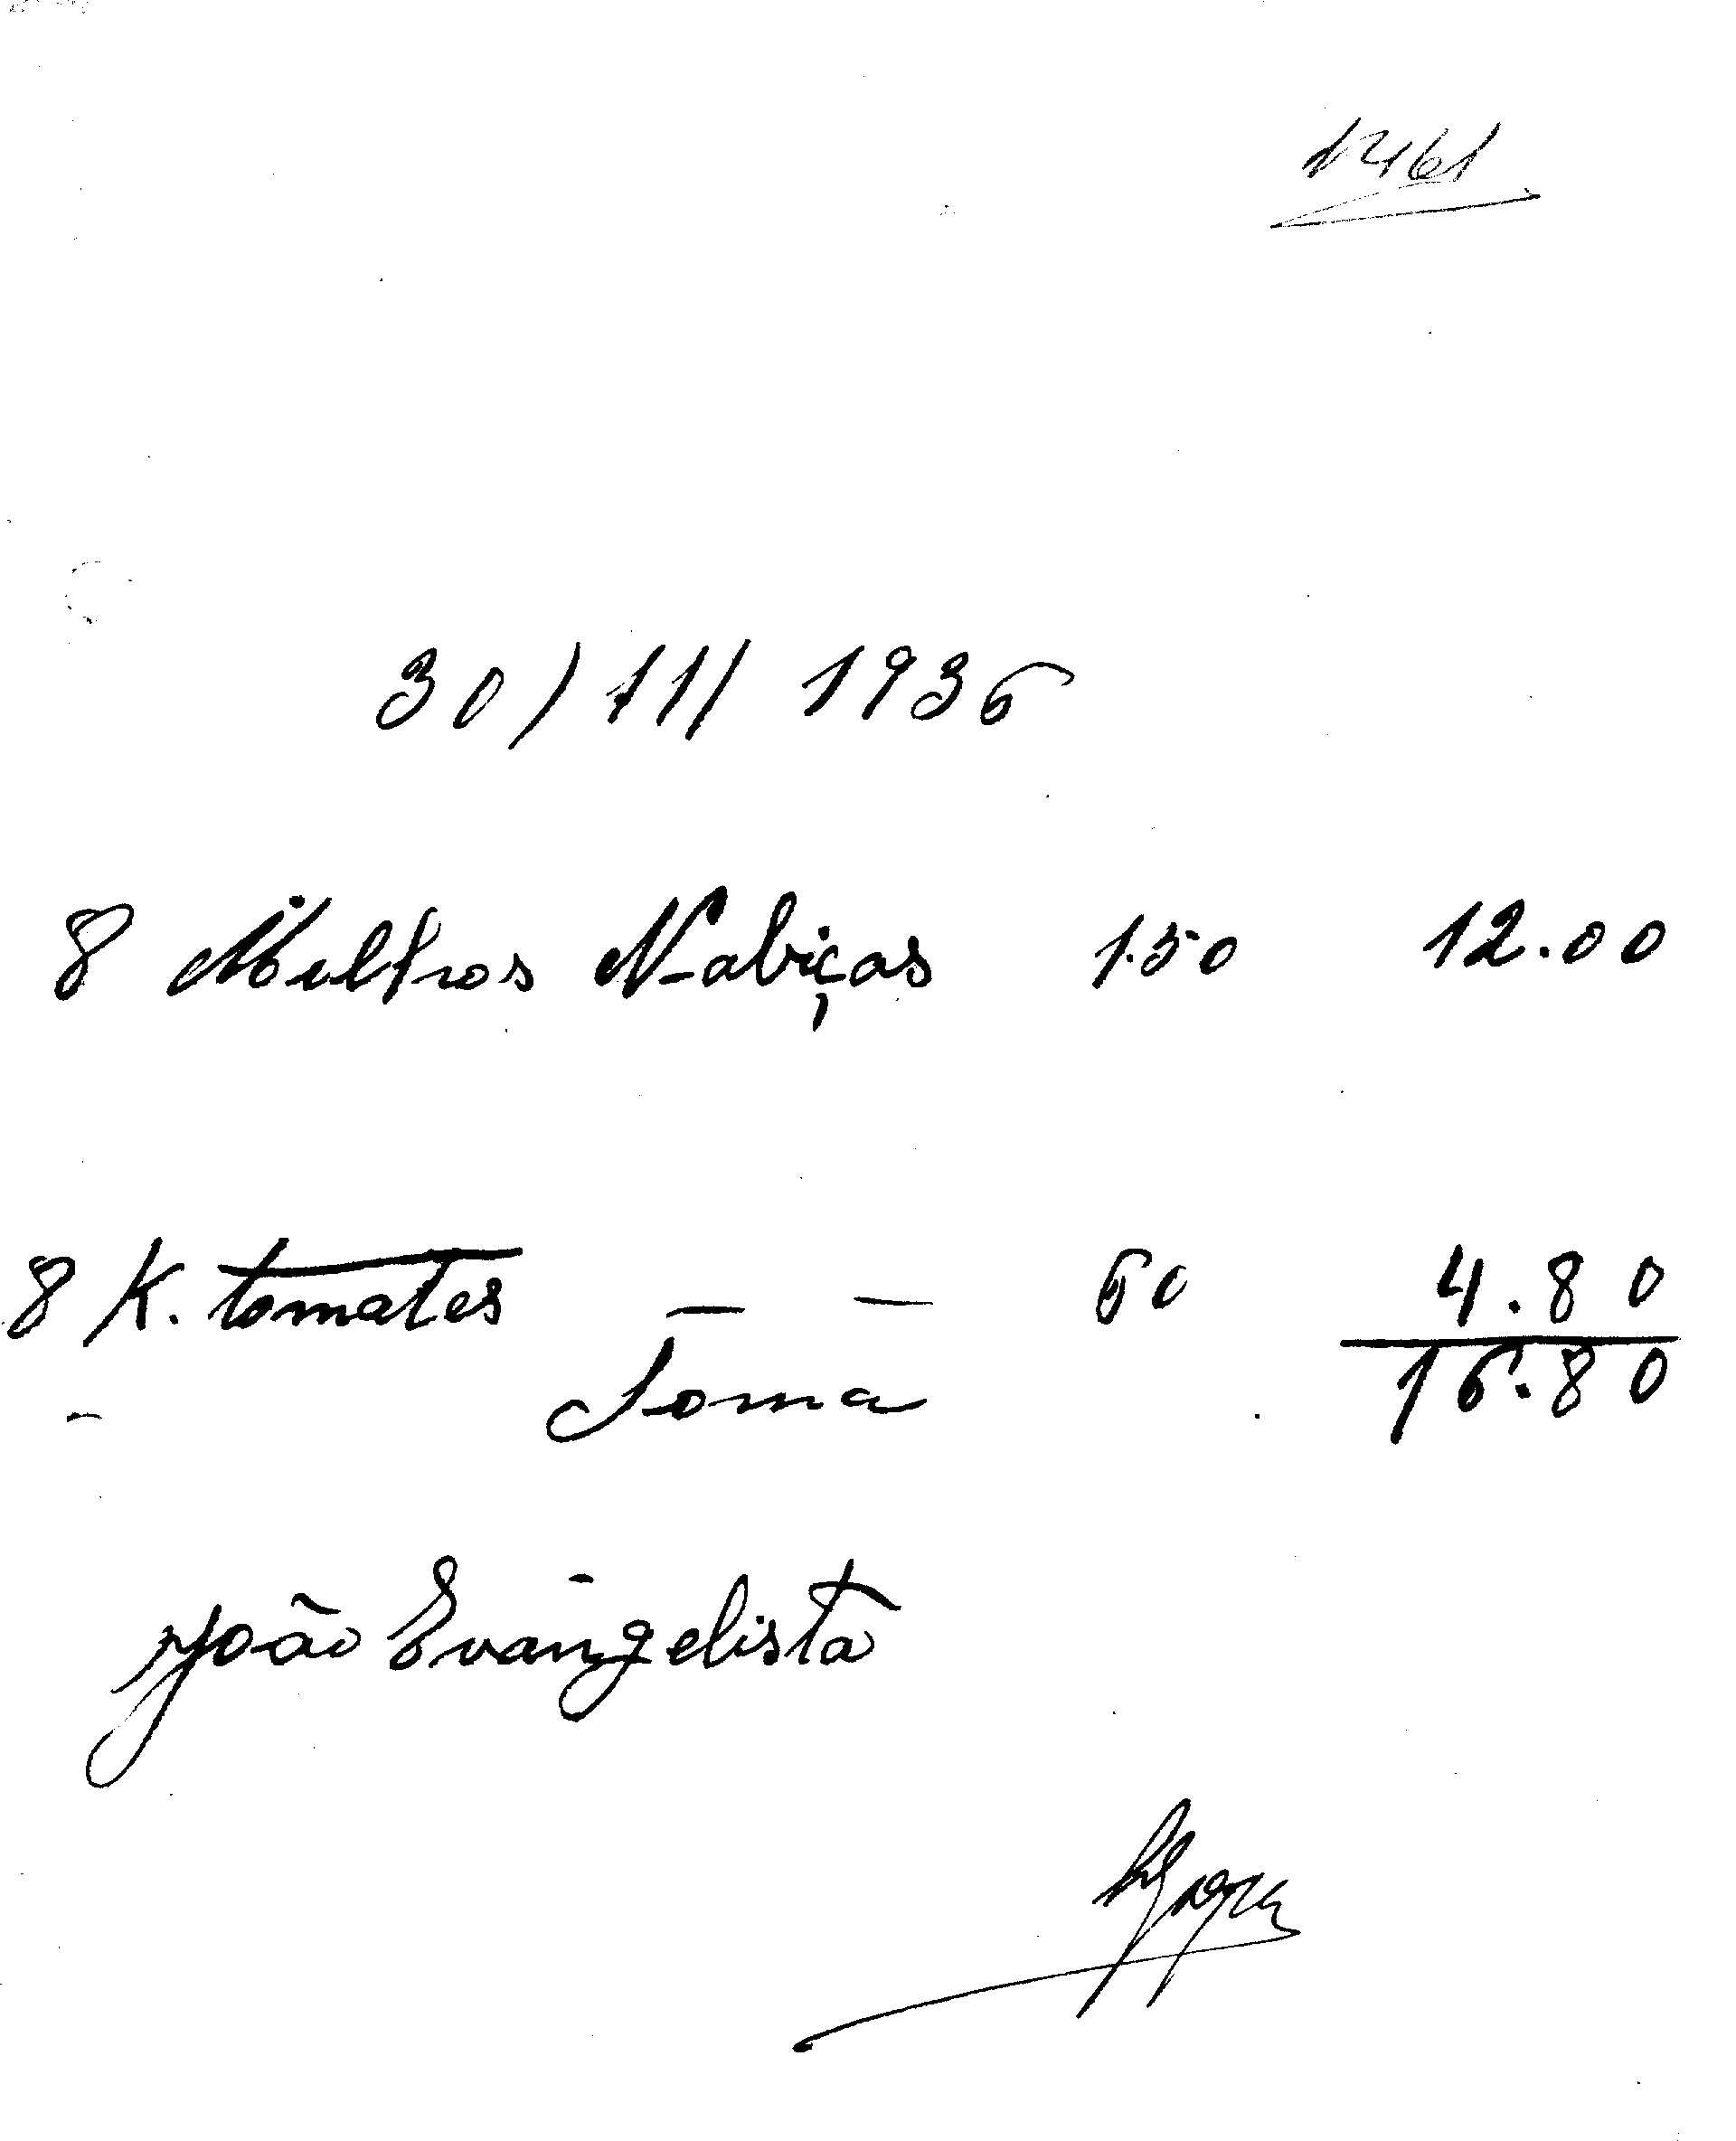 1461
30/11/1936
8 Melhos Nabiças 1.50 12.00
8 K. tomates — — 60 4.80
Soma 16.80
João Evangelista